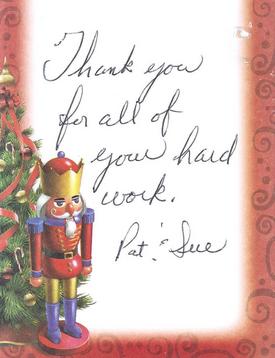 Thank you
for all of
your hard
work.
Pat & Sue